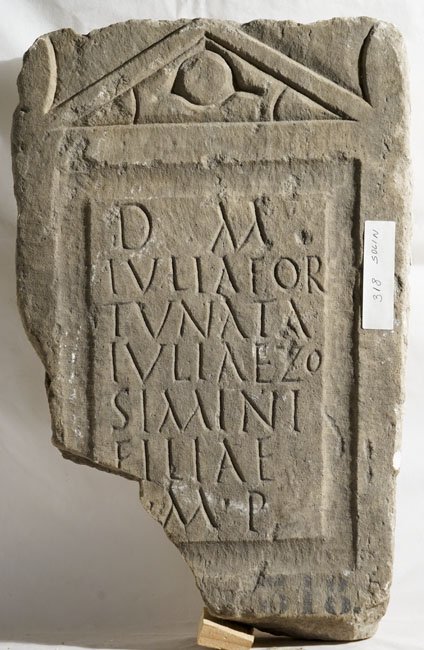 D M
IVLIA FOR
TVNATA
IVLIAE ZO
SIMINI
FILIAE
M P
318 SOLIN
318.